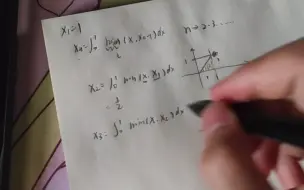 x₁=1
xₙ=∫₀¹ min(x, xₙ₋₁)dx n=2,3,...
x₂=∫₀¹ min(x, x₁)dx
=1/2
x₃=∫₀¹ min(x, x₂)dx